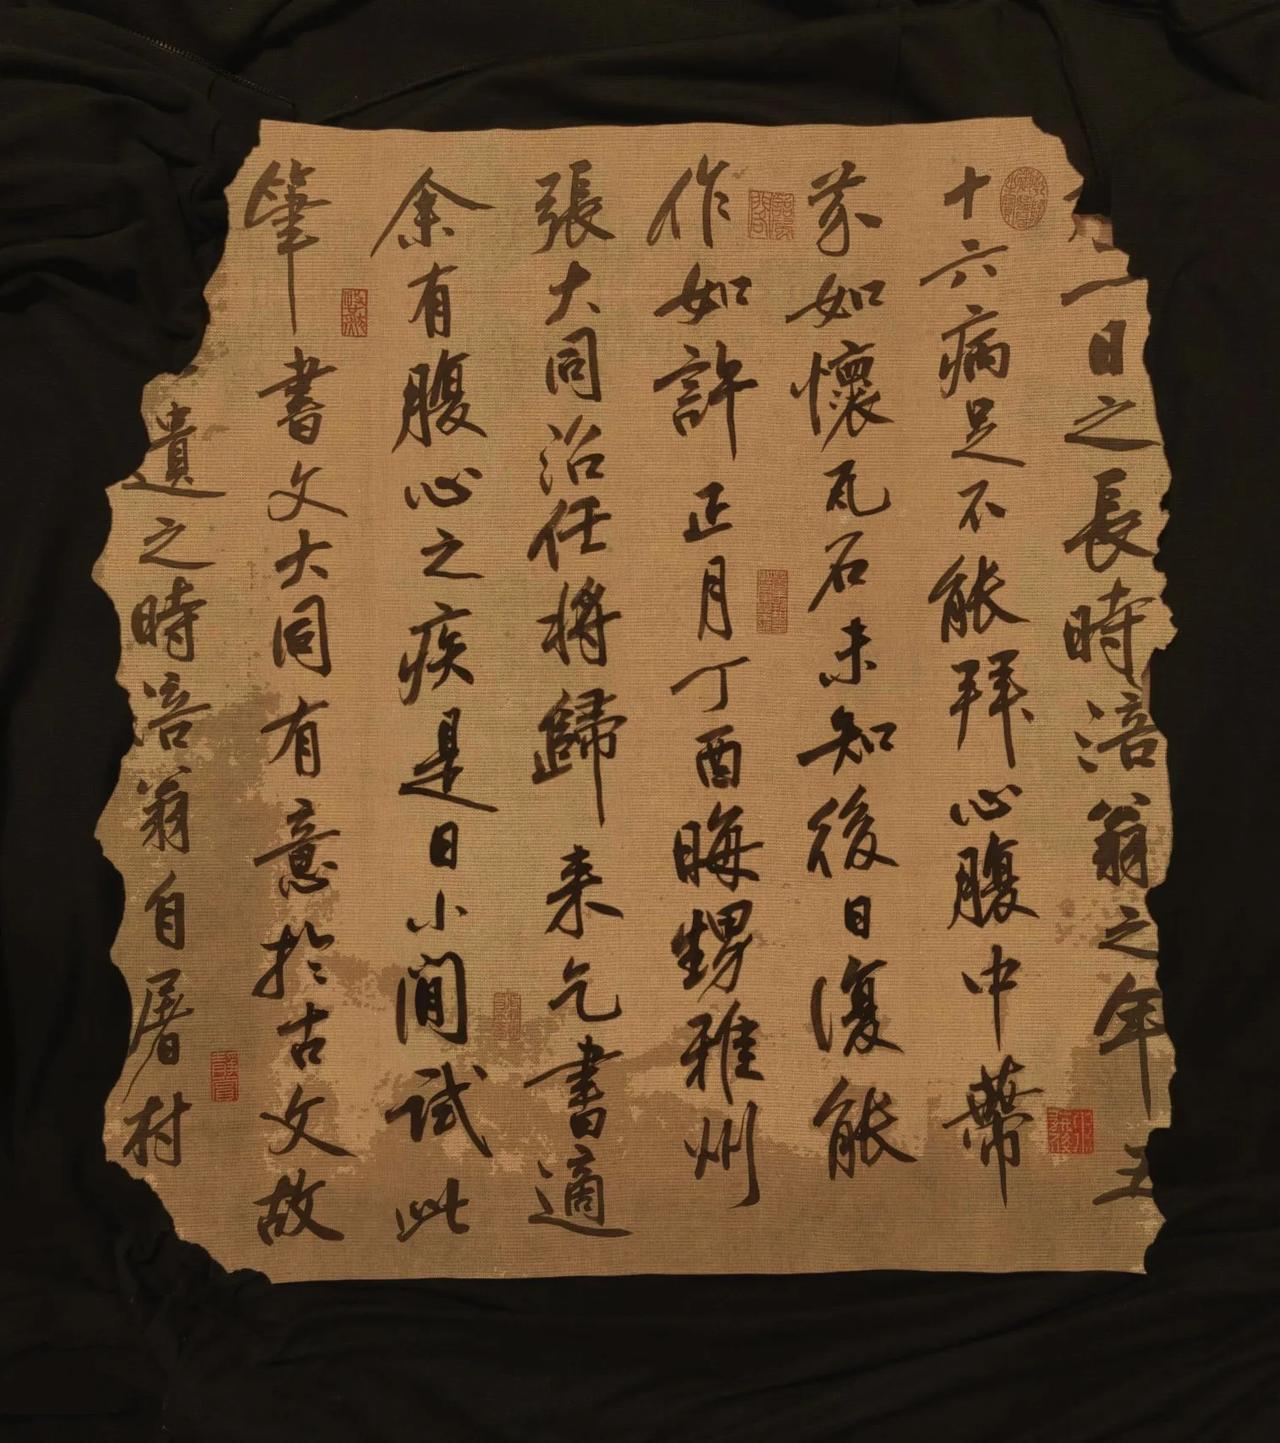 日之長時涪翁之年五
十六病足不能拜心腹中蔕
芥如懷瓦石未知後日復能
作如許 正月丁酉晦甥雅州
張大同治任將歸來乞書適
余有腹心之疾是日小閒試此
筆 書文大同有意於古文故
遺之時涪翁自屠村